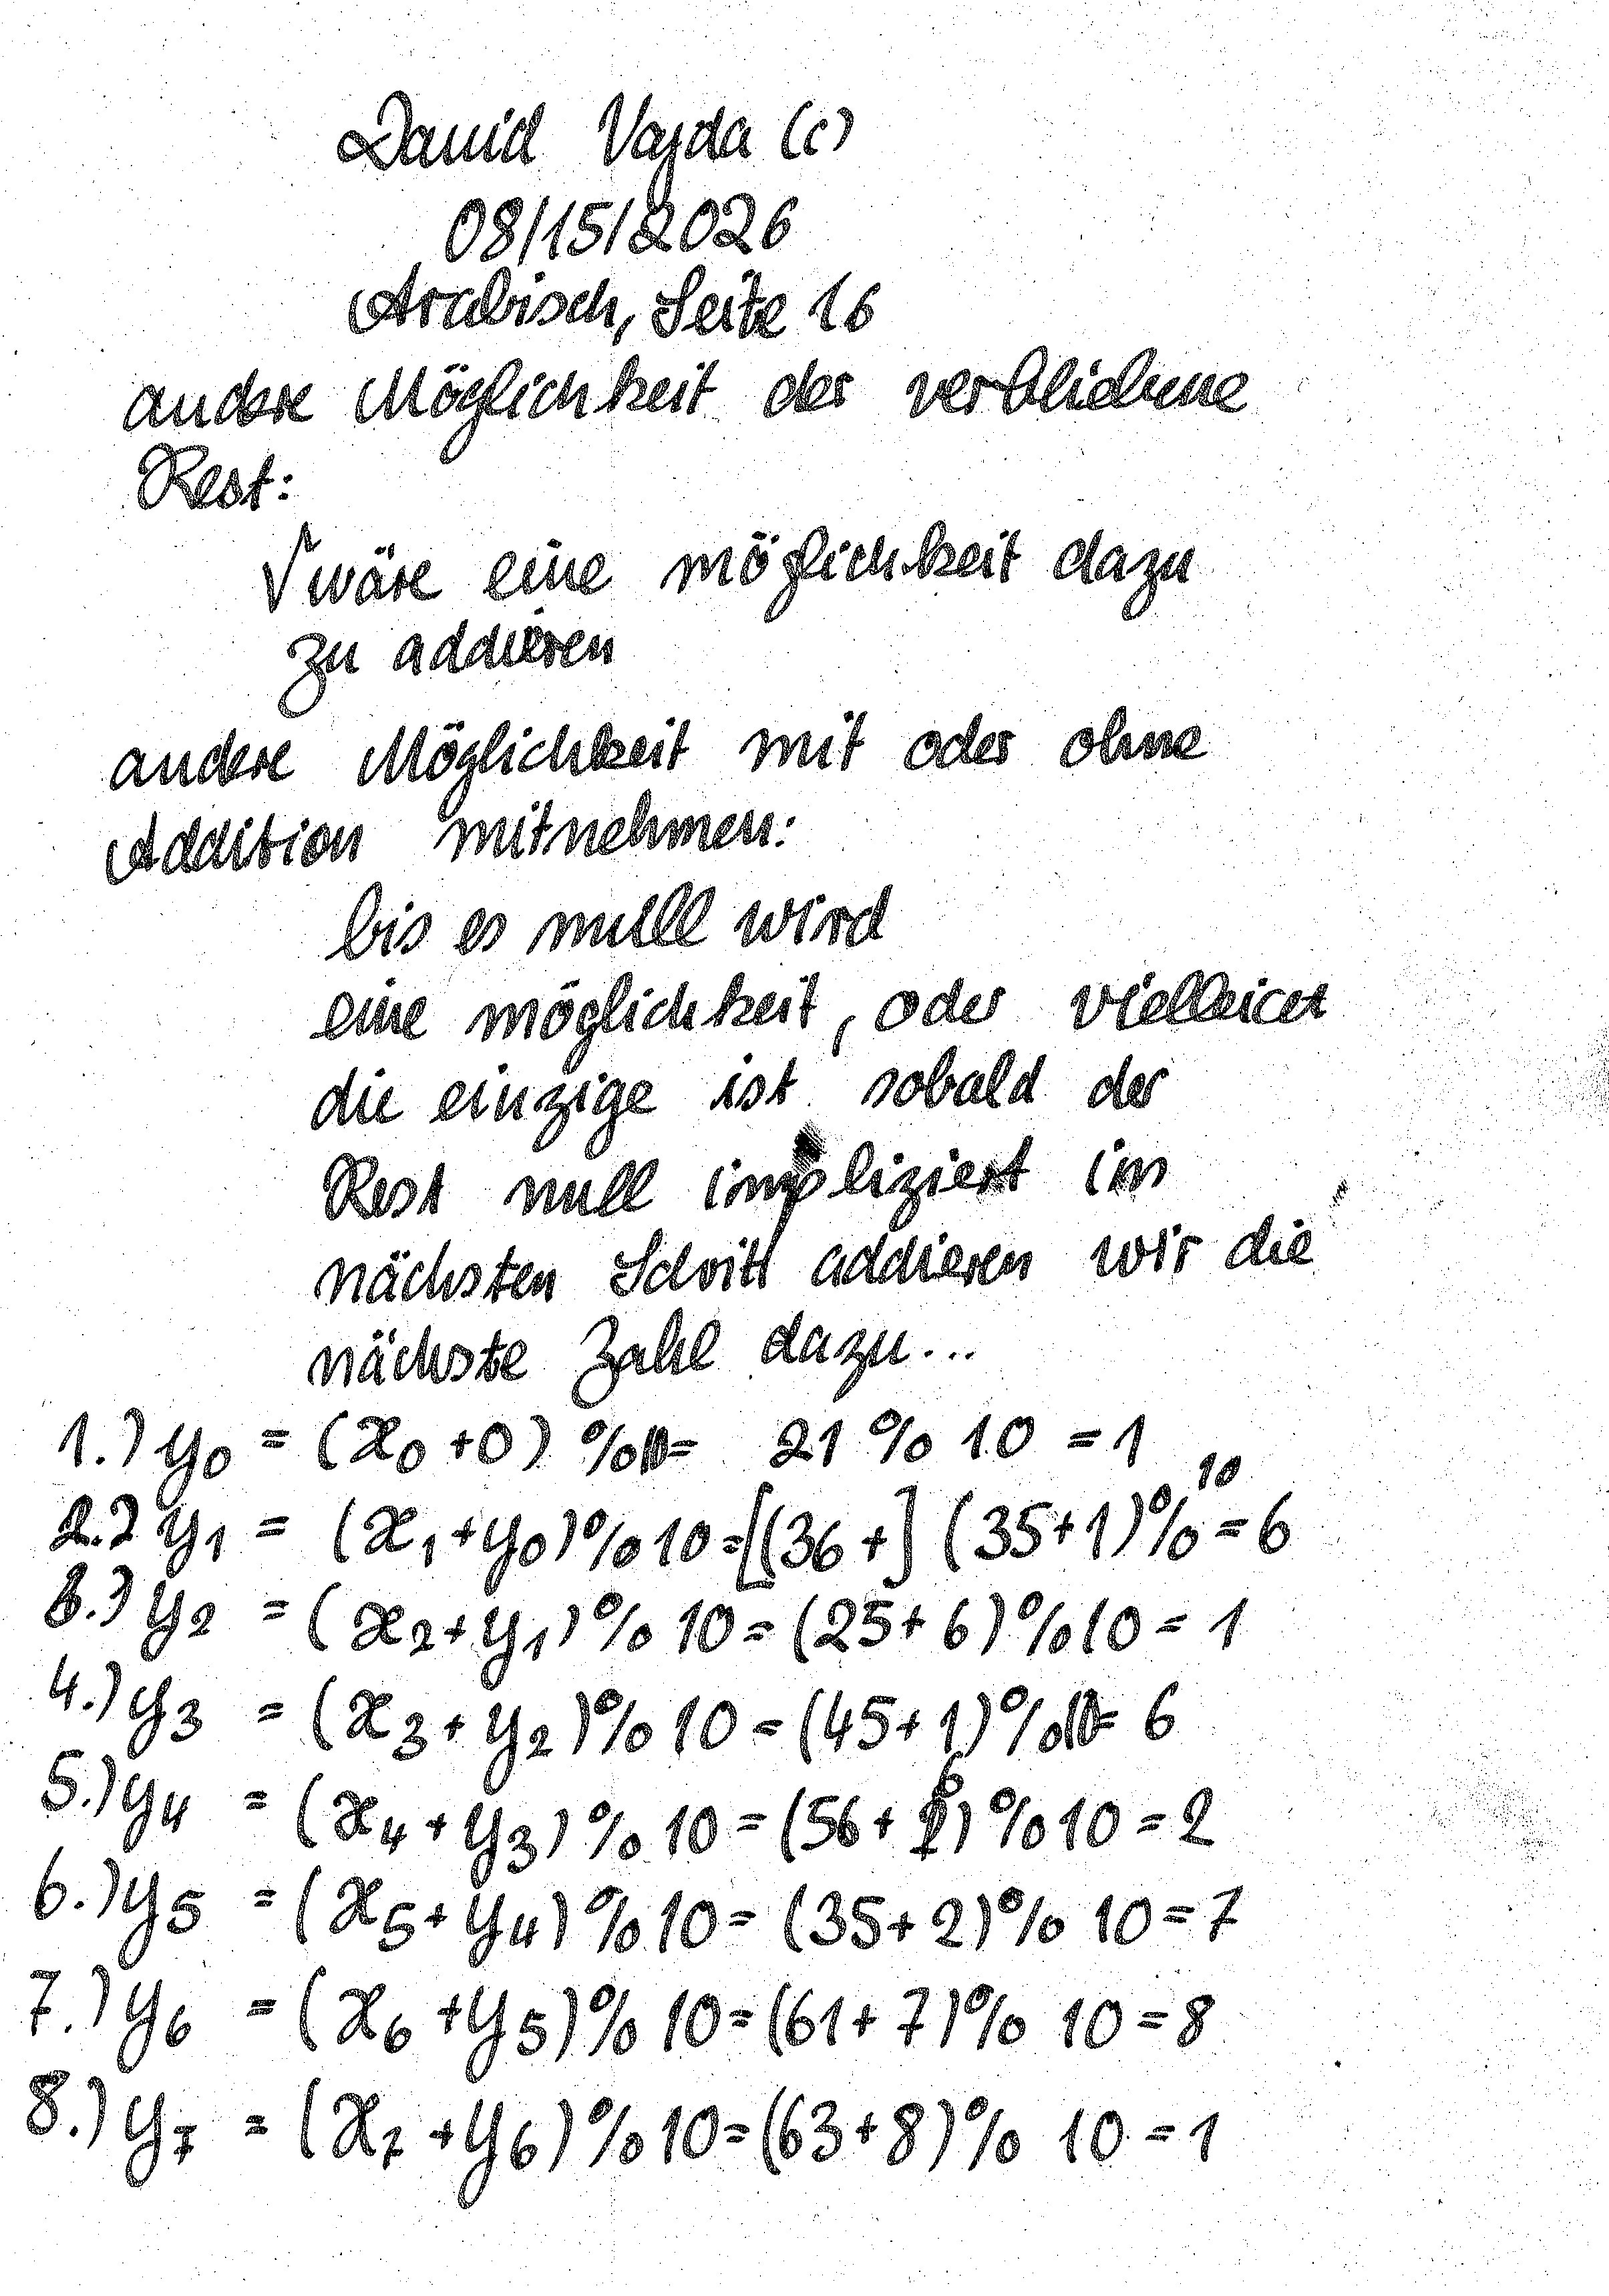 David Vajda (c)
08/15/2026
Arabisch, Seite 16
andere Möglichkeit der verbliebene
Rest:
√ wäre eine möglichkeit dazu
zu addieren
andere Möglichkeit mit oder ohne
Addition mitnehmen:
bis es null wird
eine möglichkeit, oder vielleicet
die einzige ist sobald der
Rest null impliziert im
nächsten Schritt addieren wir die
nächste Zahl dazu...
1.) y₀ = (x₀ + 0) % 10 = 21 % 10 = 1
2.) y₁ = (x₁ + y₀) % 10 = [(36 +] (35 + 1) % 10 = 6
3.) y₂ = (x₂ + y₁) % 10 = (25 + 6) % 10 = 1
4.) y₃ = (x₃ + y₂) % 10 = (45 + 1) % 10 = 6
5.) y₄ = (x₄ + y₃) % 10 = (56 + 6) % 10 = 2
6.) y₅ = (x₅ + y₄) % 10 = (35 + 2) % 10 = 7
7.) y₆ = (x₆ + y₅) % 10 = (61 + 7) % 10 = 8
8.) y₇ = (x₇ + y₆) % 10 = (63 + 8) % 10 = 1